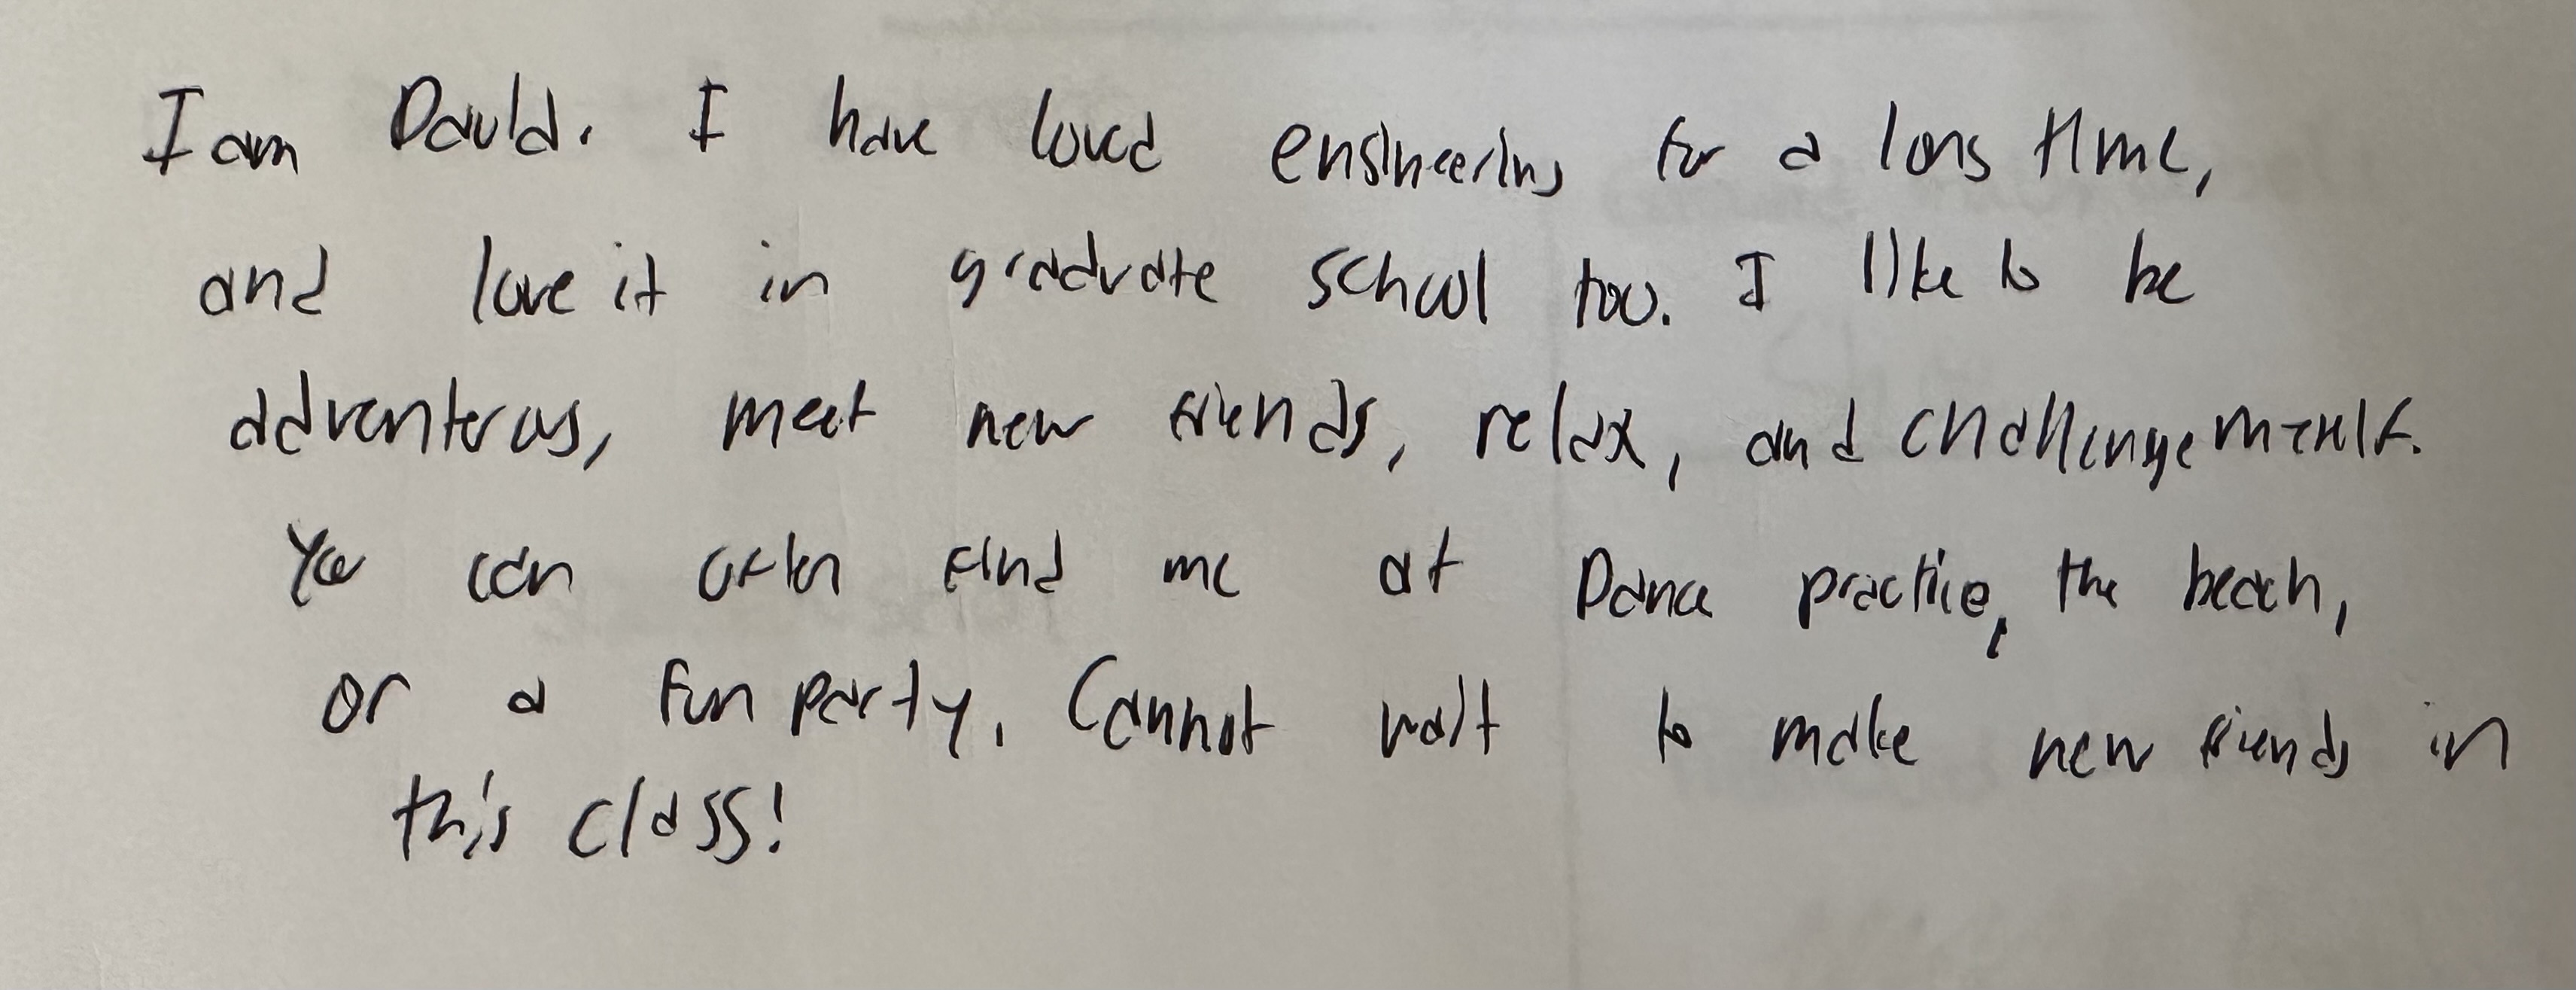 I am David. I have loved engineering for a long time,
and love it in graduate school too. I like to be
adventerous, meet new friends, relax, and challenge myself.
You can often find me at Dance practice, the beach,
or a fun party. Cannot wait to make new friends in
this class!